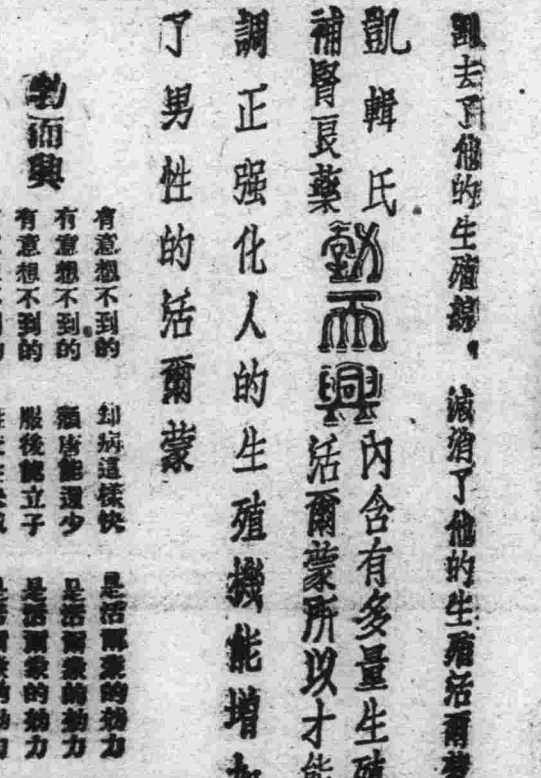 割去了他的生殖線。減消了他的生殖活爾蒙
凱輯氏
補腎良藥
勃而興
內含有多量生殖
活爾蒙所以才能
調正强化人的生殖機能增加
了男性的活爾蒙
勃而興
有意想不到的 卻病這樣快 是活爾蒙的効力
有意想不到的 頹唐能還少 是活爾蒙的効力
有意想不到的 服後能立子 是活爾蒙的効力